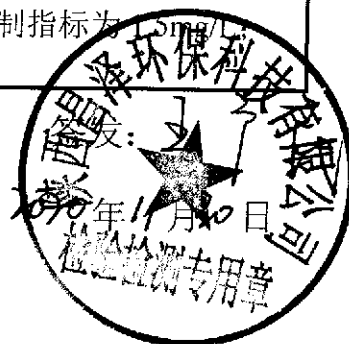 制指标为 1.5mg/L。
签发：
年11月20日
陕西昌泽环保科技有限公司
检验检测专用章